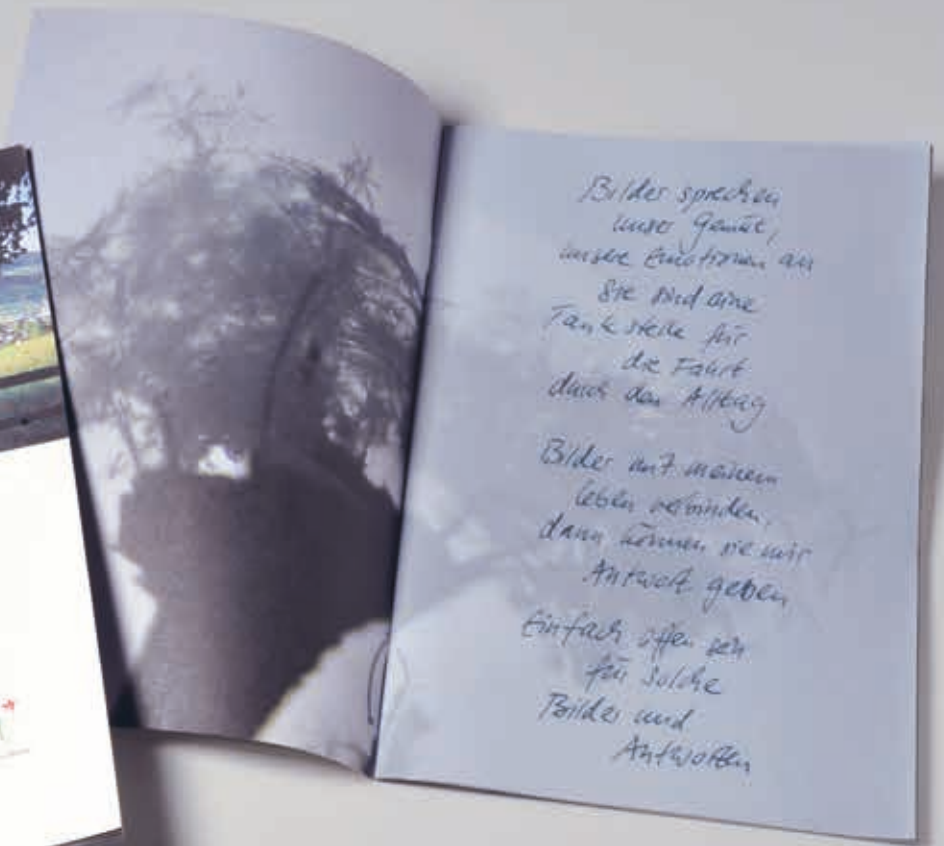 Bilder sprechen
unser Gemüt,
unsere Emotionen an
Sie sind eine
Tankstelle für
die Fahrt
durch den Alltag
Bilder mit meinem
Leben verbinden,
dann können sie mir
Antwort geben
Einfach offen sein
für solche
Bilder und
Antworten